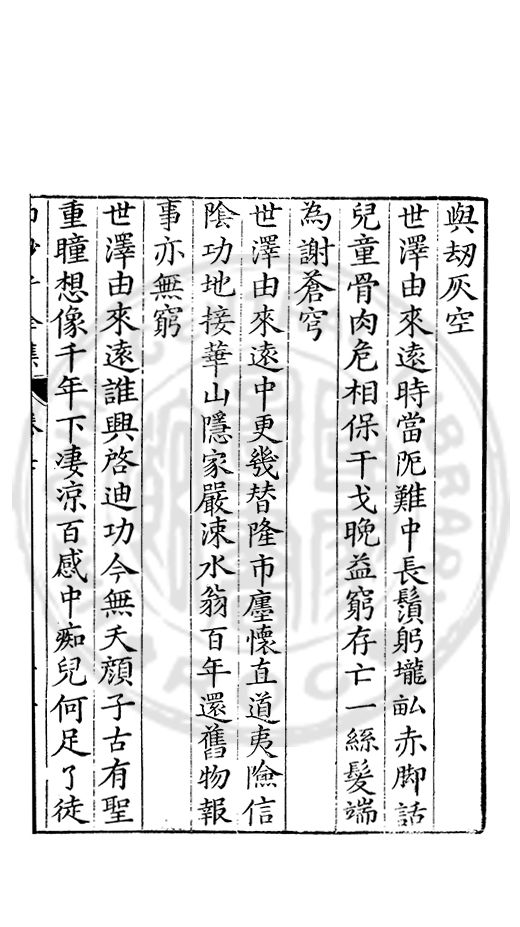 與刼灰空
世澤由來遠時當阨難中長鬚躬壠畝赤脚話
兒童骨肉危相保干戈晚益窮存亡一絲髮端
為謝蒼穹
世澤由來遠中更幾替隆市廛懷直道夷險信
陰功地接華山隱家嚴涑水翁百年還舊物報
事亦無窮
世澤由來遠誰興啓迪功今無夭顏子古有聖
重瞳想像千年下凄涼百感中痴兒何足了徒